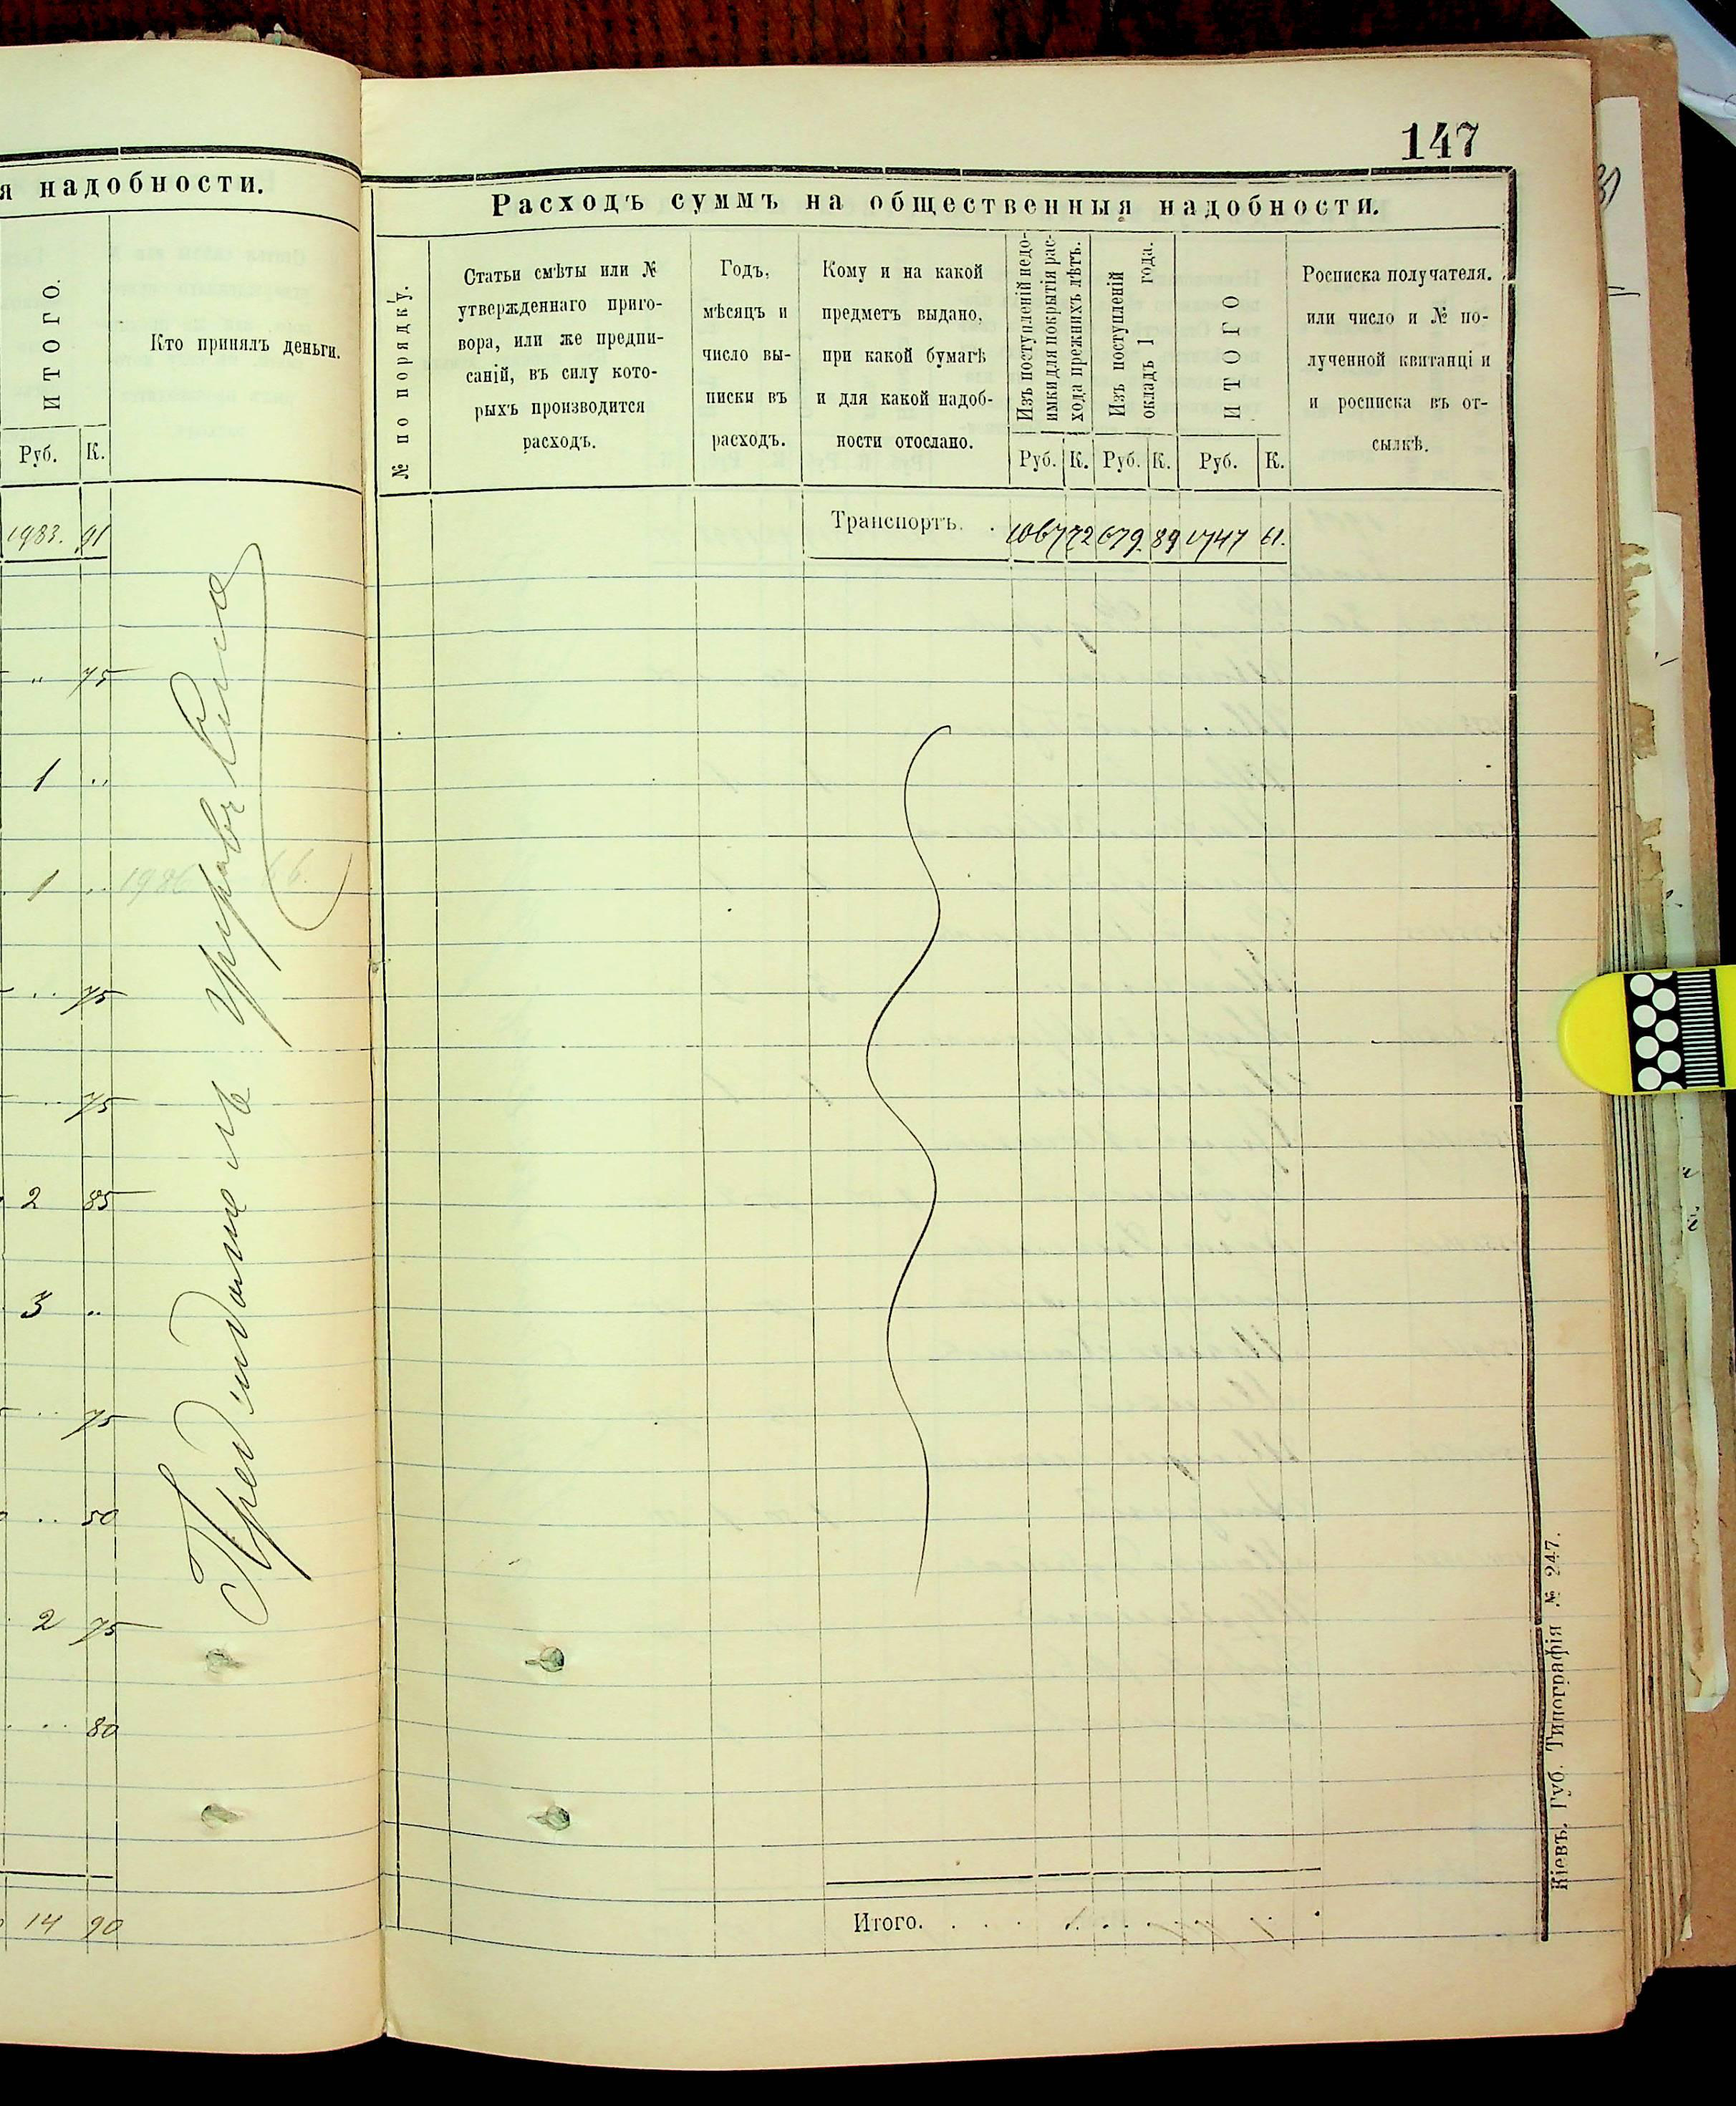 147
я надобности.
ИТОГО.
Кто принялъ деньги.
Руб. К.
1983. 91
" 75
1 ..
1 .. 1986 66.
.. 75
.. 75
2 85
3 ..
.. 75
.. 50
2 75
.. 80
14 90
Расходъ суммъ на общественныя надобности.
№ по порядку.
Статьи смѣты или №
утвержденнаго приго-
вора, или же предпи-
саній, въ силу кото-
рыхъ производится
расходъ.
Годъ,
мѣсяцъ и
число вы-
писки въ
расходъ.
Кому и на какой
предметъ выдано,
при какой бумагѣ
и для какой надоб-
ности отослано.
Изъ поступленій недо-
имки для покрытія рас-
хода прежнихъ лѣтъ.
Изъ поступленій
окладъ 1 года.
ИТОГО
Росписка получателя.
или число и № по-
лученной квитанці и
и росписка въ от-
сылкѣ.
Руб. К. Руб. К. Руб. К.
Транспортъ. . 1067 72 679. 89 1747 61.
Итого. . . .
Кіевъ. Губ. Типографія № 247.